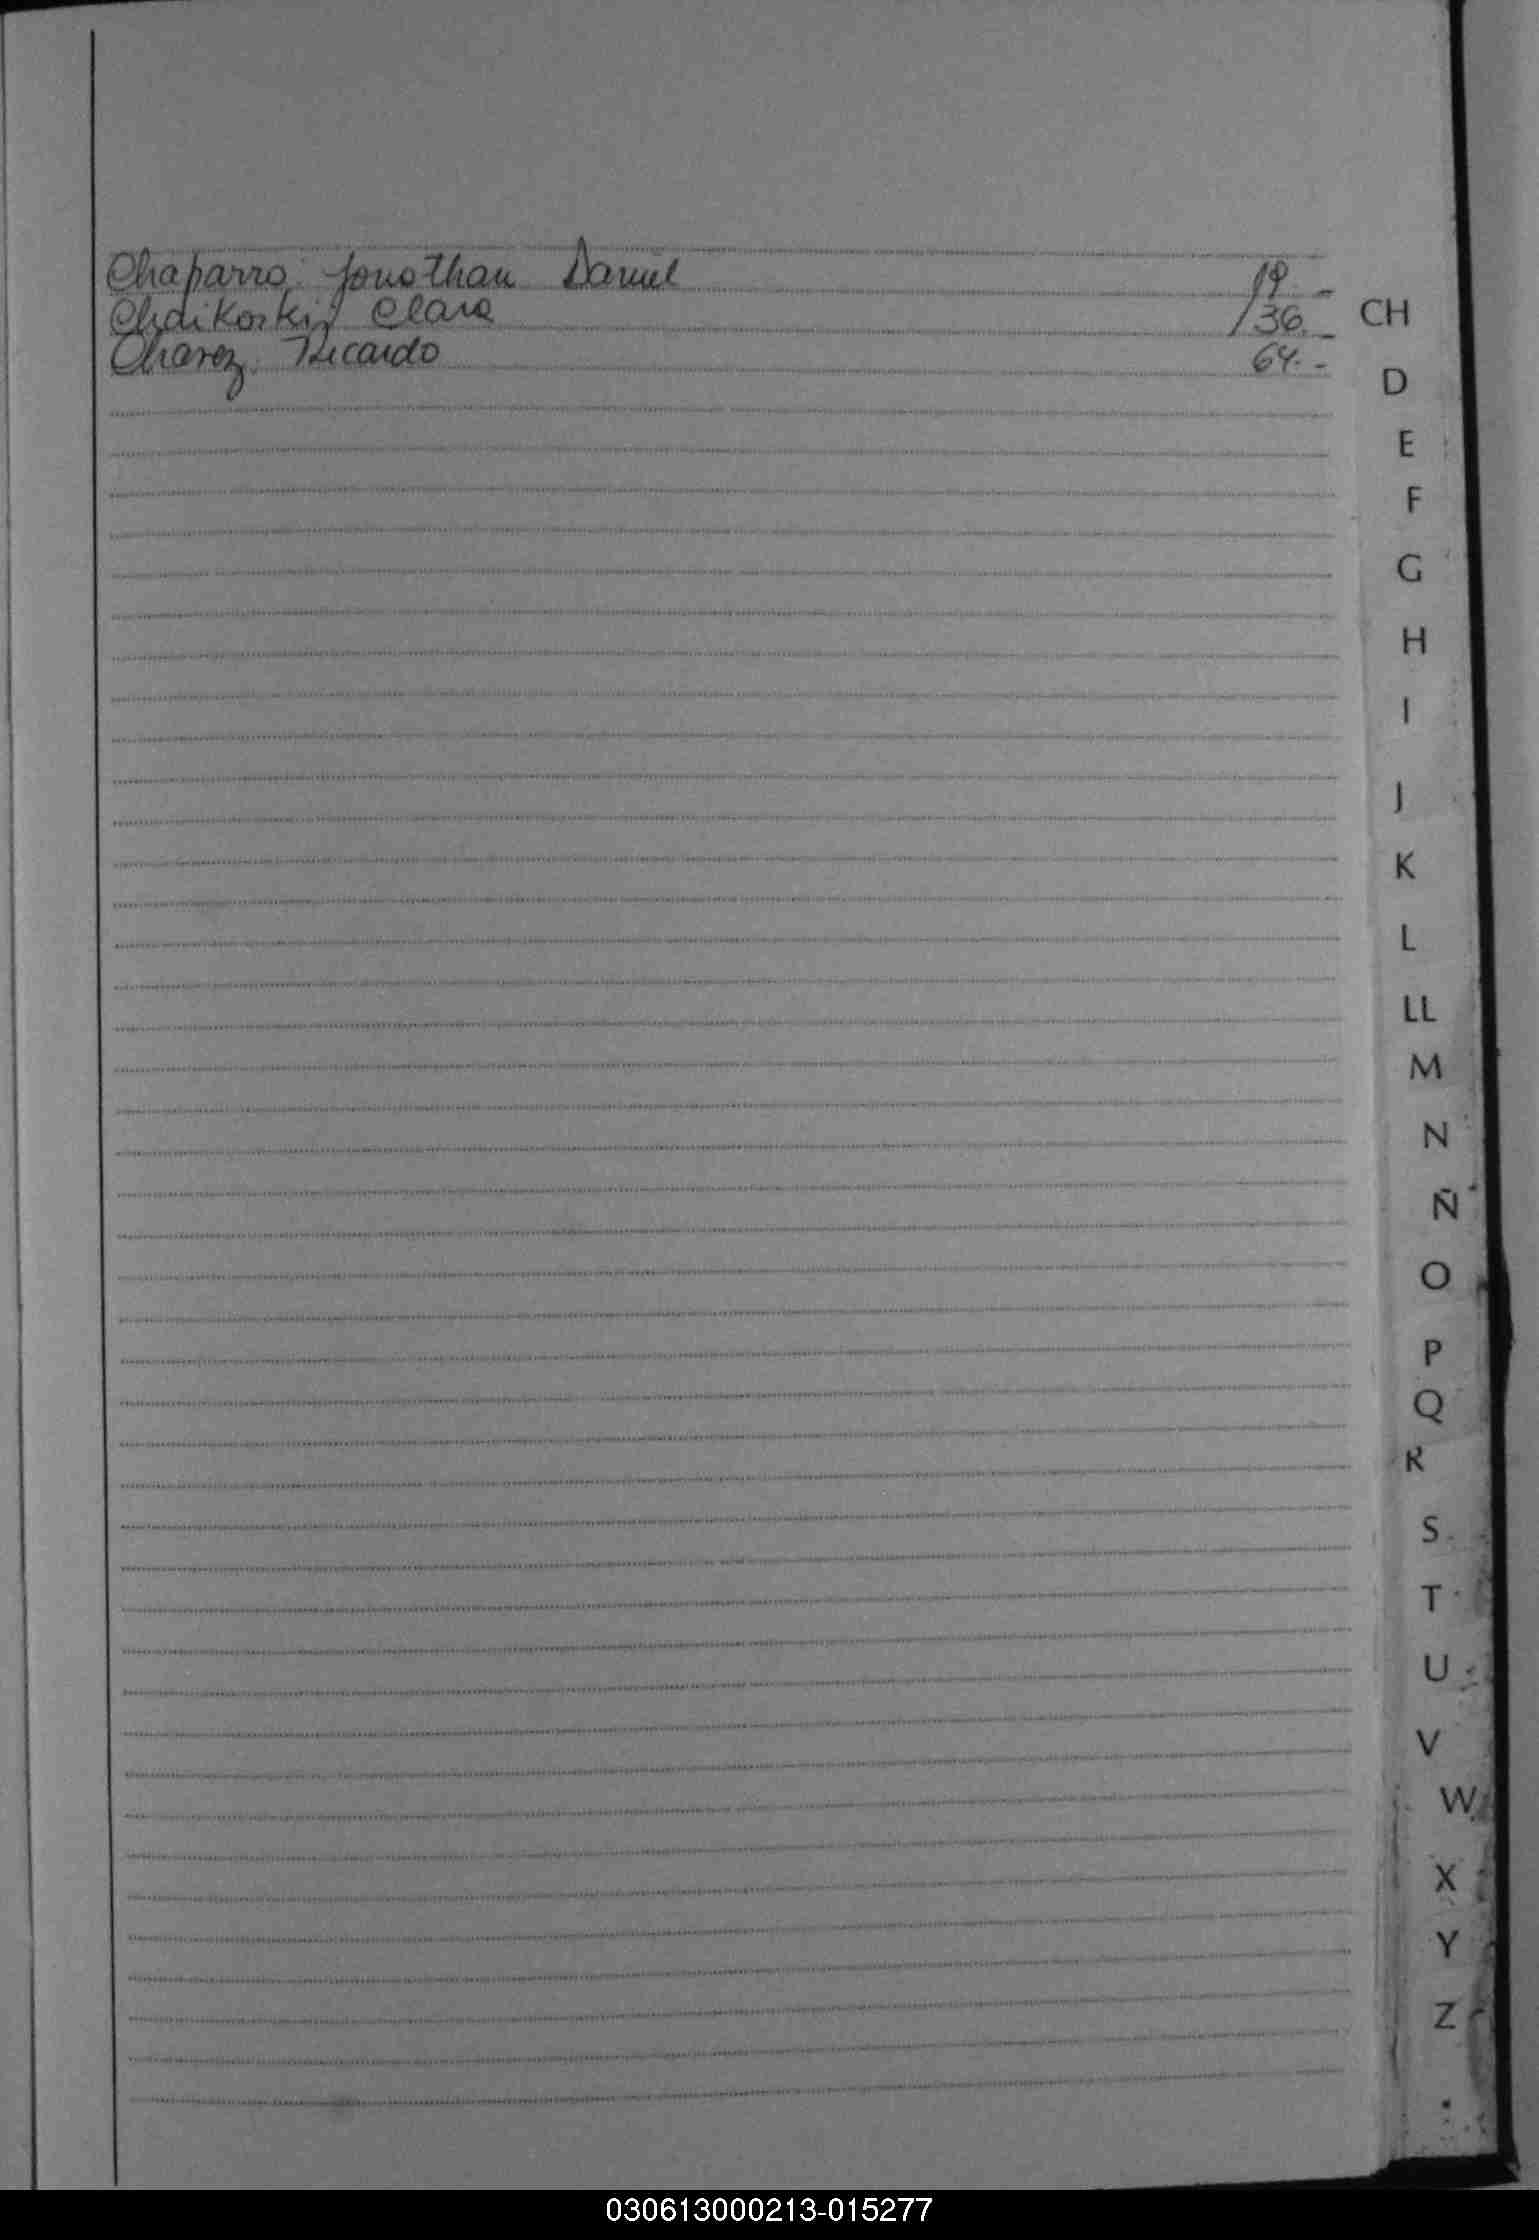 Chaparro Jonathan Daniel 19.-
Chaikoski Clara 36.-
Chavez Ricardo 64.-
CH
D
E
F
G
H
I
J
K
L
LL
M
N
Ñ
O
P
Q
R
S
T
U
V
W
X
Y
Z
030613000213-015277